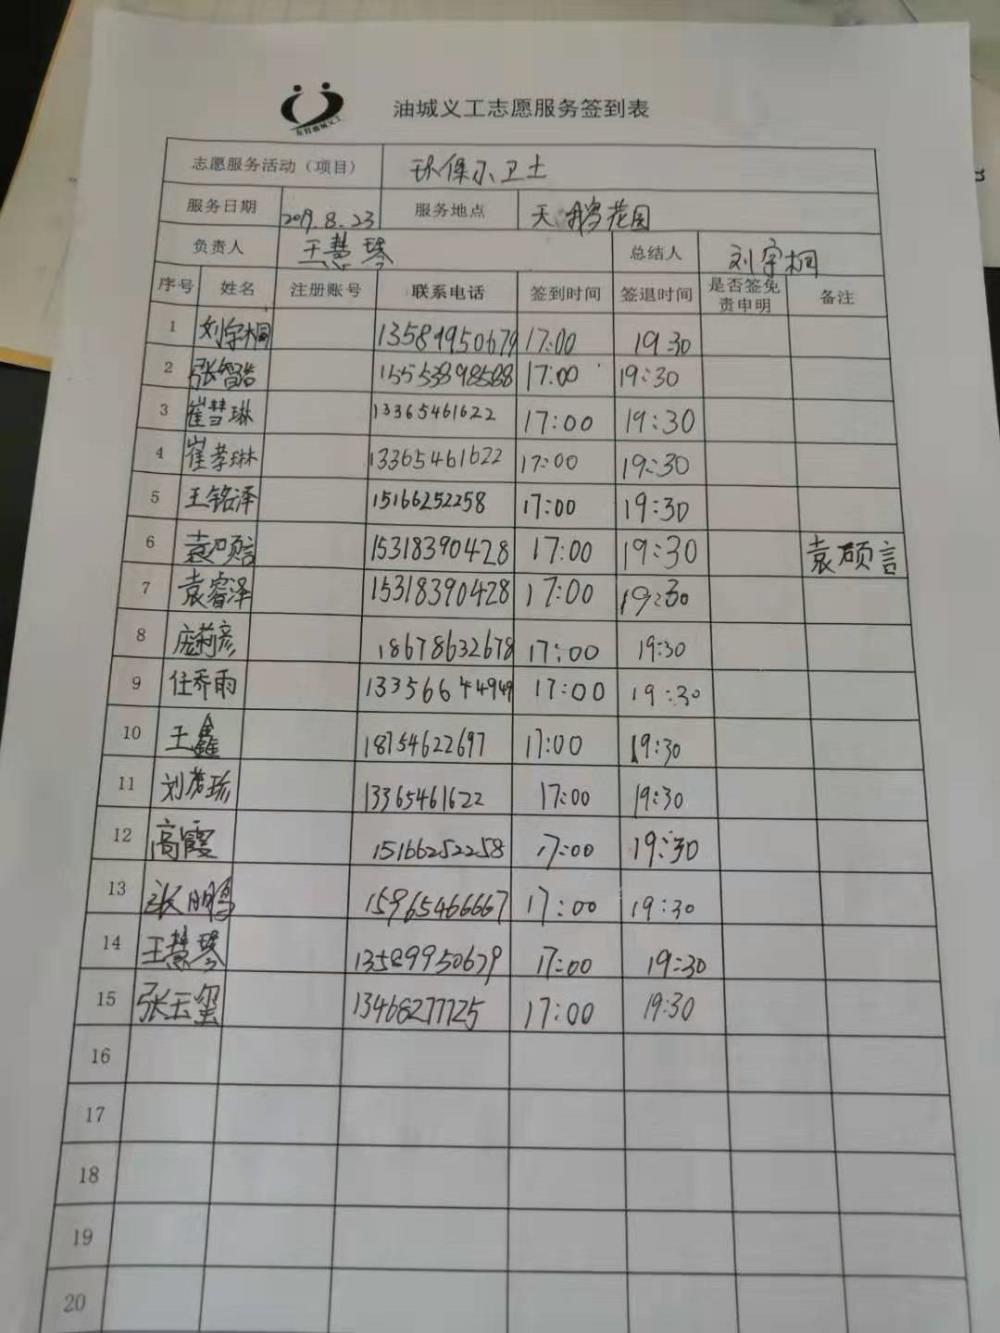 油城义工志愿服务签到表
志愿服务活动（项目） 环保小卫士
服务日期 2019.8.23 服务地点 天鹅花园
负责人 王慧琴 总结人 刘宇桐
序号 姓名 注册账号 联系电话 签到时间 签退时间 是否签免责申明 备注
1 刘宇桐 13589950679 17:00 19:30
2 张智皓 15553898588 17:00 19:30
3 崔彗琳 13365461622 17:00 19:30
4 崔孝琳 13365461622 17:00 19:30
5 王铭泽 15166252258 17:00 19:30
6 袁硕言 15318390428 17:00 19:30 袁硕言
7 袁睿泽 15318390428 17:00 19:30
8 庞莉彦 18678632678 17:00 19:30
9 任乔雨 13356644949 17:00 19:30
10 王鑫 18754622697 17:00 19:30
11 13365461622 17:00 19:30
12 高霞 15166252258 17:00 19:30
13 张鹏 15965466667 17:00 19:30
14 王慧琴 13589950679 17:00 19:30
15 张玉玺 13466277725 17:00 19:30
16
17
18
19
20